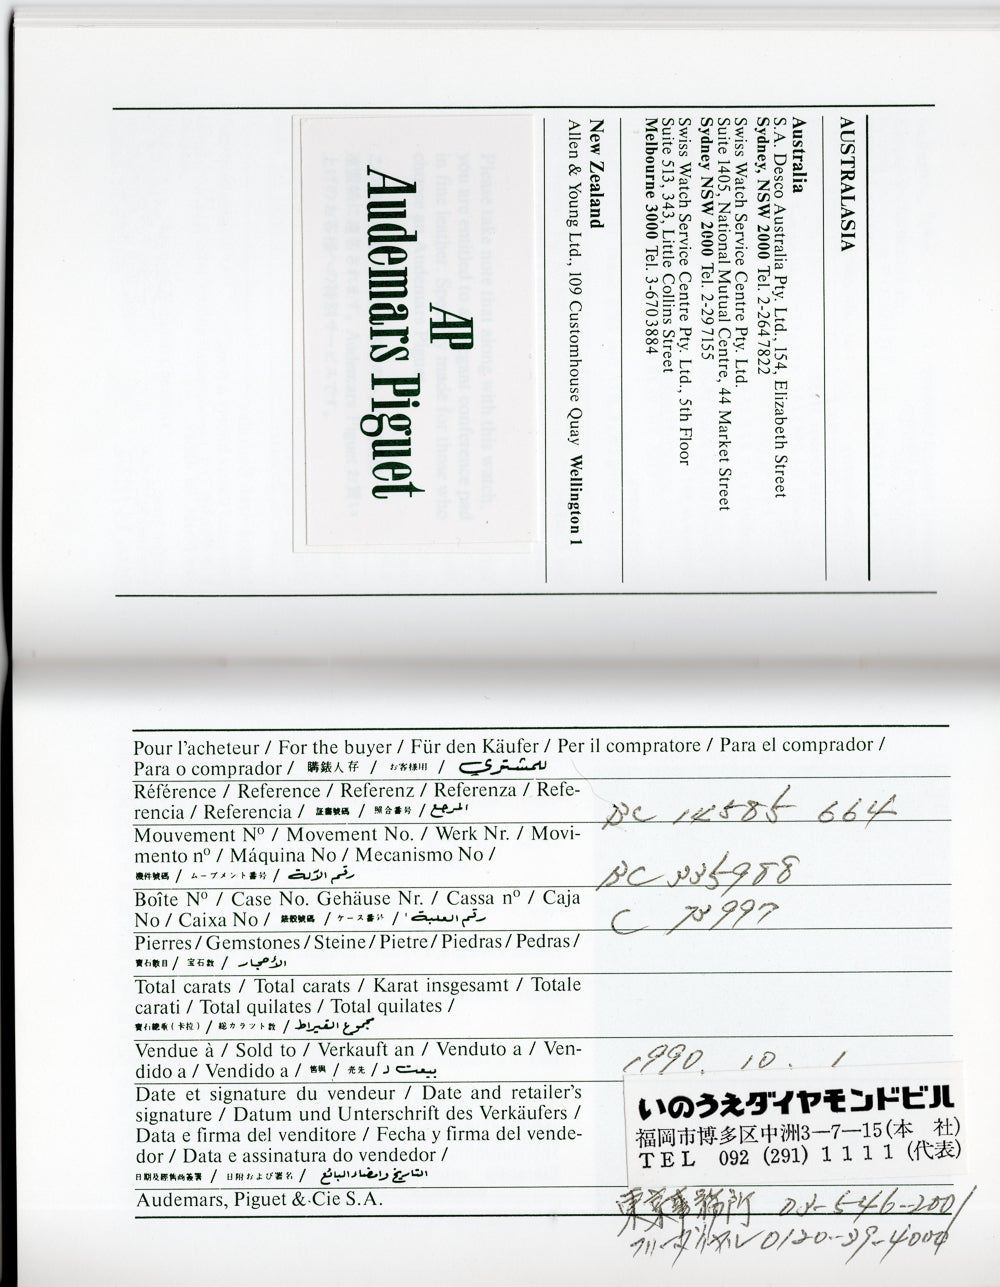 AUSTRALASIA
Australia
S.A. Desco Australia Pty. Ltd., 154, Elizabeth Street
Sydney, NSW 2000 Tel. 2-264 7822
Swiss Watch Service Centre Pty. Ltd.
Suite 1405, National Mutual Centre, 44 Market Street
Sydney NSW 2000 Tel. 2-29 7155
Swiss Watch Service Centre Pty. Ltd., 5th Floor
Suite 513, 343, Little Collins Street
Melbourne 3000 Tel. 3-670 3884
New Zealand
Allen & Young Ltd., 109 Customhouse Quay Wellington 1
AP
Audemars Piguet
Pour l'acheteur / For the buyer / Für den Käufer / Per il compratore / Para el comprador /
Para o comprador / 購錶人存 / お客様用 / للمشتري
Référence / Reference / Referenz / Referenza / Refe-
rencia / Referencia / 証書號碼 / 照合番号 / المرجع
BC 14585 664
Mouvement Nº / Movement No. / Werk Nr. / Movi-
mento nº / Máquina No / Mecanismo No /
機件號碼 / ムーブメント番号 / رقم الآلة
BC 335988
Boîte Nº / Case No. Gehäuse Nr. / Cassa nº / Caja
No / Caixa No / 錶殼號碼 / ケース番号 / رقم العلبة
C 73997
Pierres / Gemstones / Steine / Pietre / Piedras / Pedras /
寶石數目 / 宝石数 / الأحجار
Total carats / Total carats / Karat insgesamt / Totale
carati / Total quilates / Total quilates /
寶石總重(卡拉) / 総カラット数 / مجموع القيراط
Vendue à / Sold to / Verkauft an / Venduto a / Ven-
dido a / Vendido a / 售與 / 売先 / بيعت لـ
1990. 10. 1
Date et signature du vendeur / Date and retailer's
signature / Datum und Unterschrift des Verkäufers /
Data e firma del venditore / Fecha y firma del vende-
dor / Data e assinatura do vendedor /
日期及經售商簽署 / 日附および署名 / التاريخ وامضاء البائع
Audemars, Piguet & Cie S.A.
いのうえダイヤモンドビル
福岡市博多区中洲3—7—15(本 社)
TEL 092 (291) 1111 (代表)
東京事務所 03-546-2001
フリーダイヤル 0120-39-4004